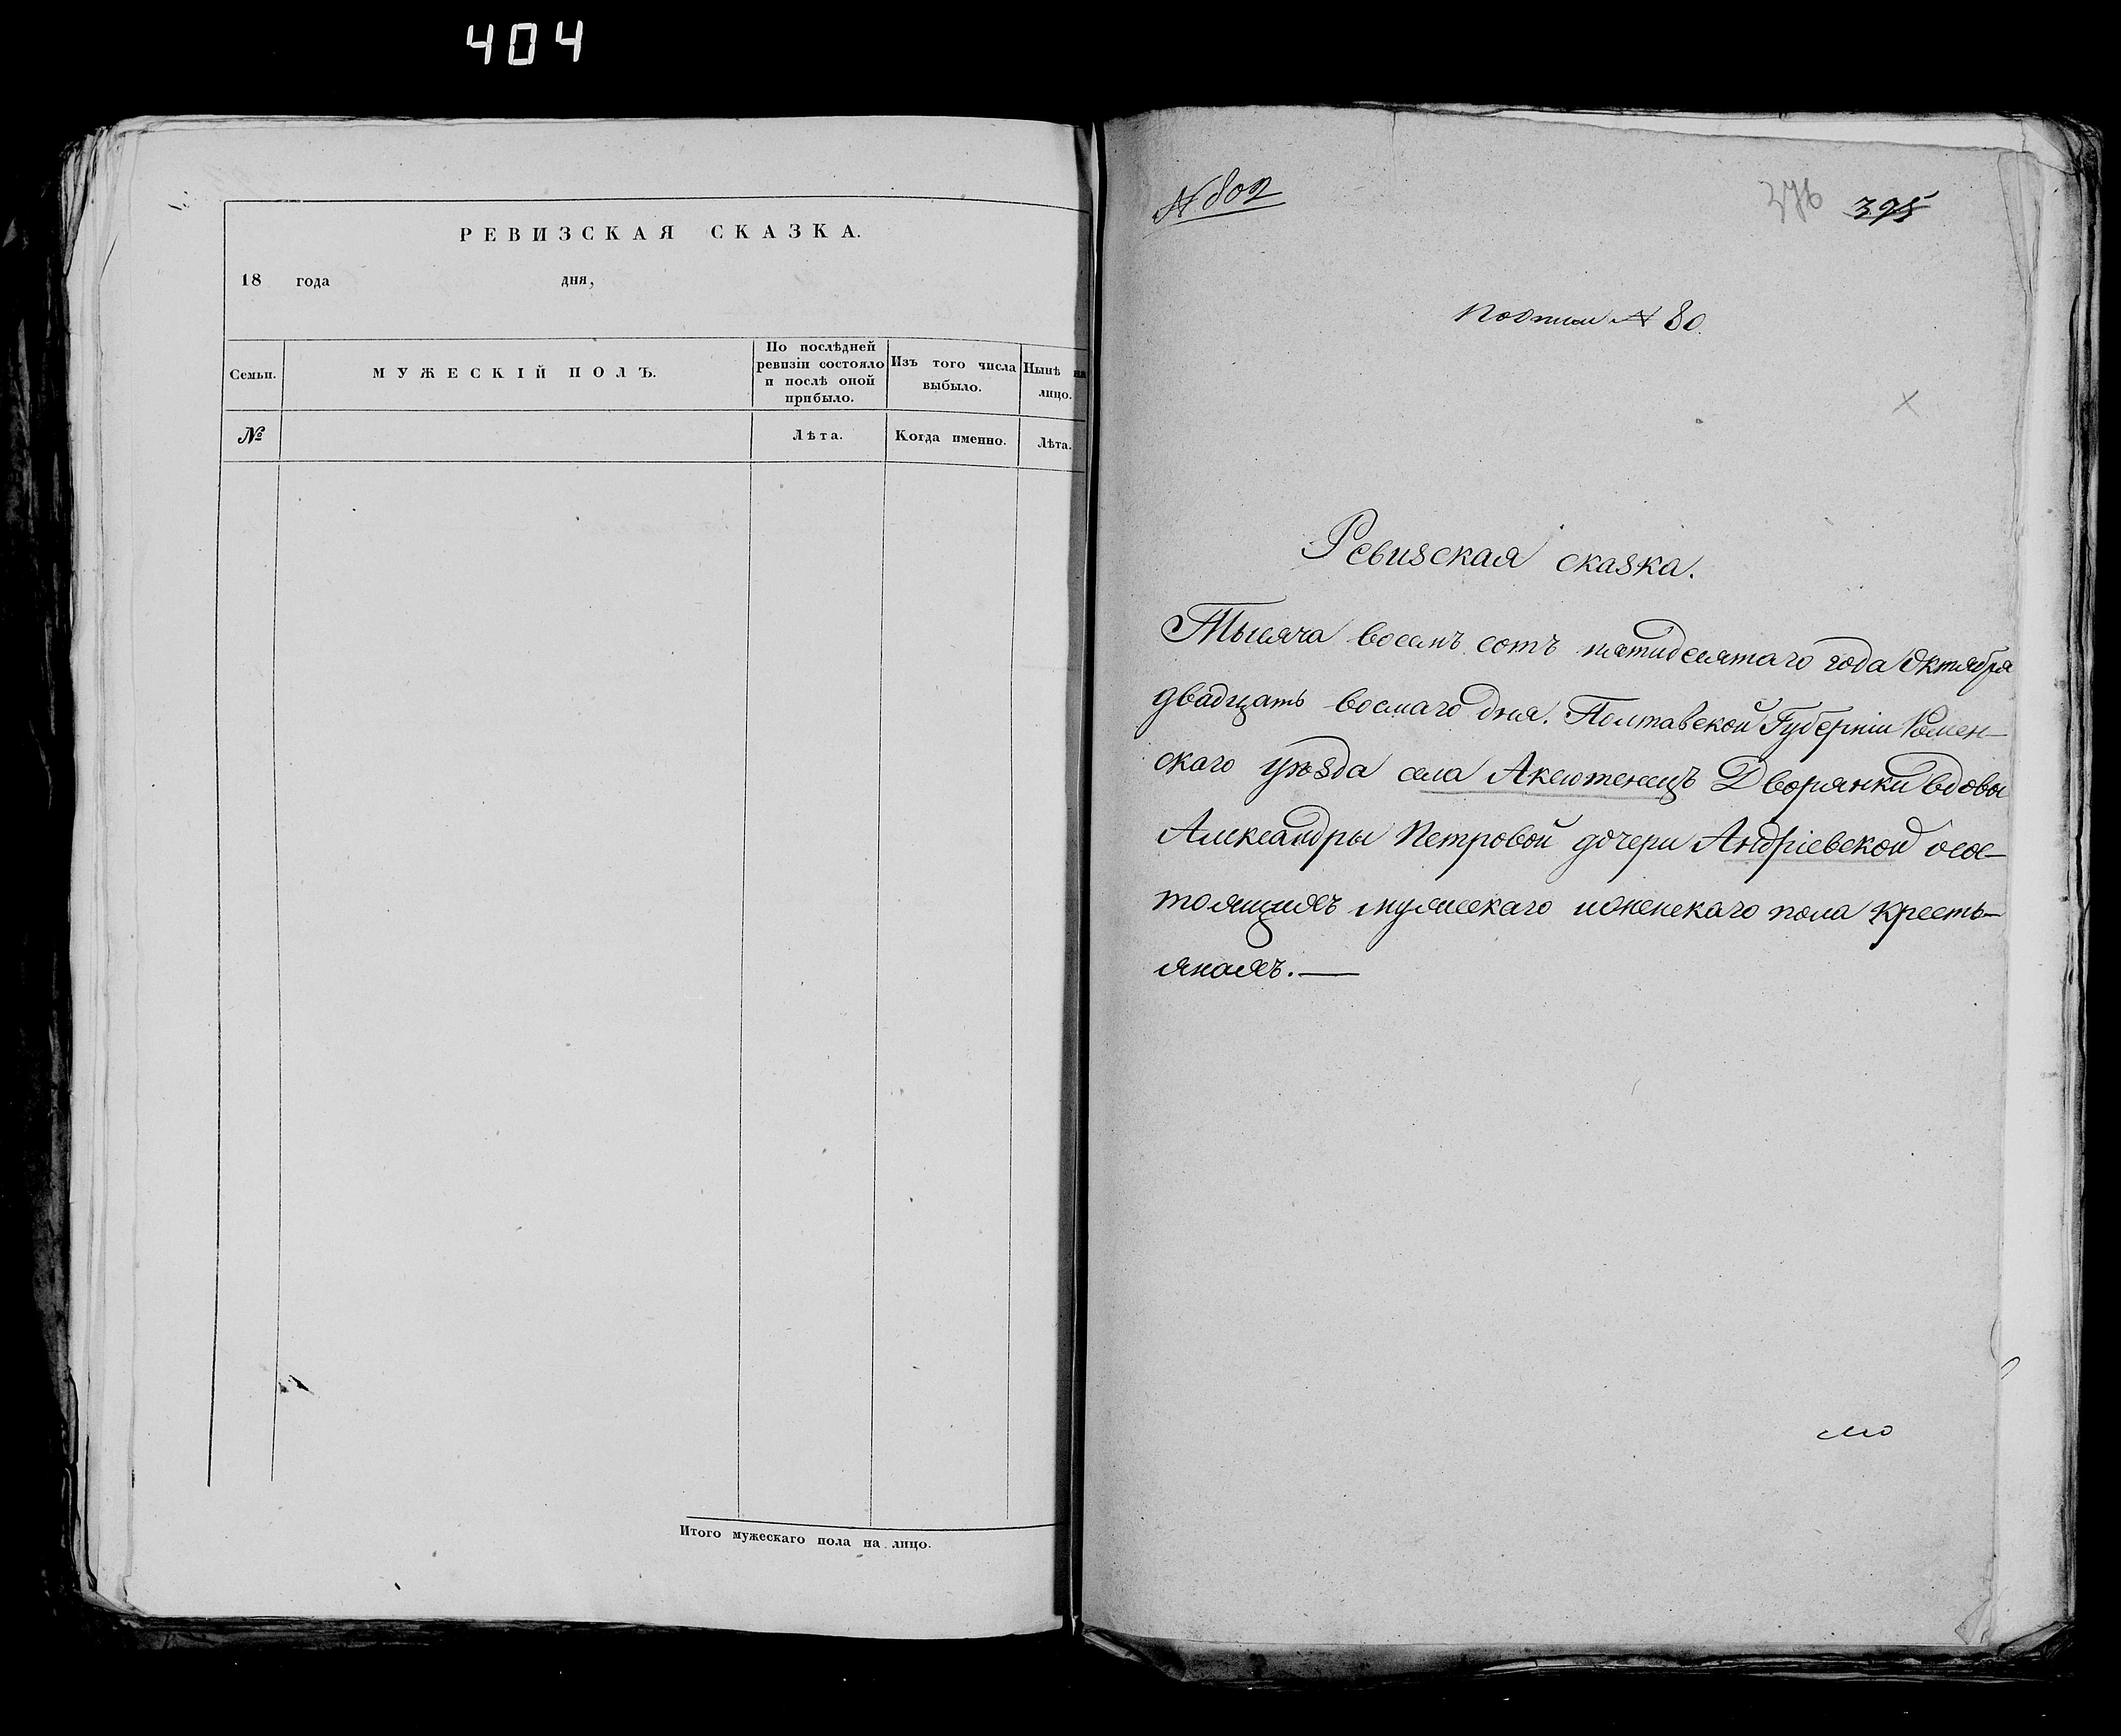 404
РЕВИЗСКАЯ СКАЗКА.
18 года дня,
Семьи.
МУЖЕСКІЙ ПОЛЪ.
По послѣдней ревизіи состояло и послѣ оной прибыло.
Изъ того числа выбыло.
Нынѣ на лицо.
№
Лѣта.
Когда именно.
Лѣта.
Итого мужескаго пола на лицо.
№ 802
376 395
№ 80.
Ревизская сказка.
Тысяча восемъ сотъ пятидесятаго года Октября
двадцать восмаго дня. Полтавской Губерніи Ромен-
скаго уѣзда села Аксютенецъ Дворянки вдовы
Александры Петровой дочери Андріевской осос-
тоящихъ мужескаго и женскаго пола кресть-
янахъ.—